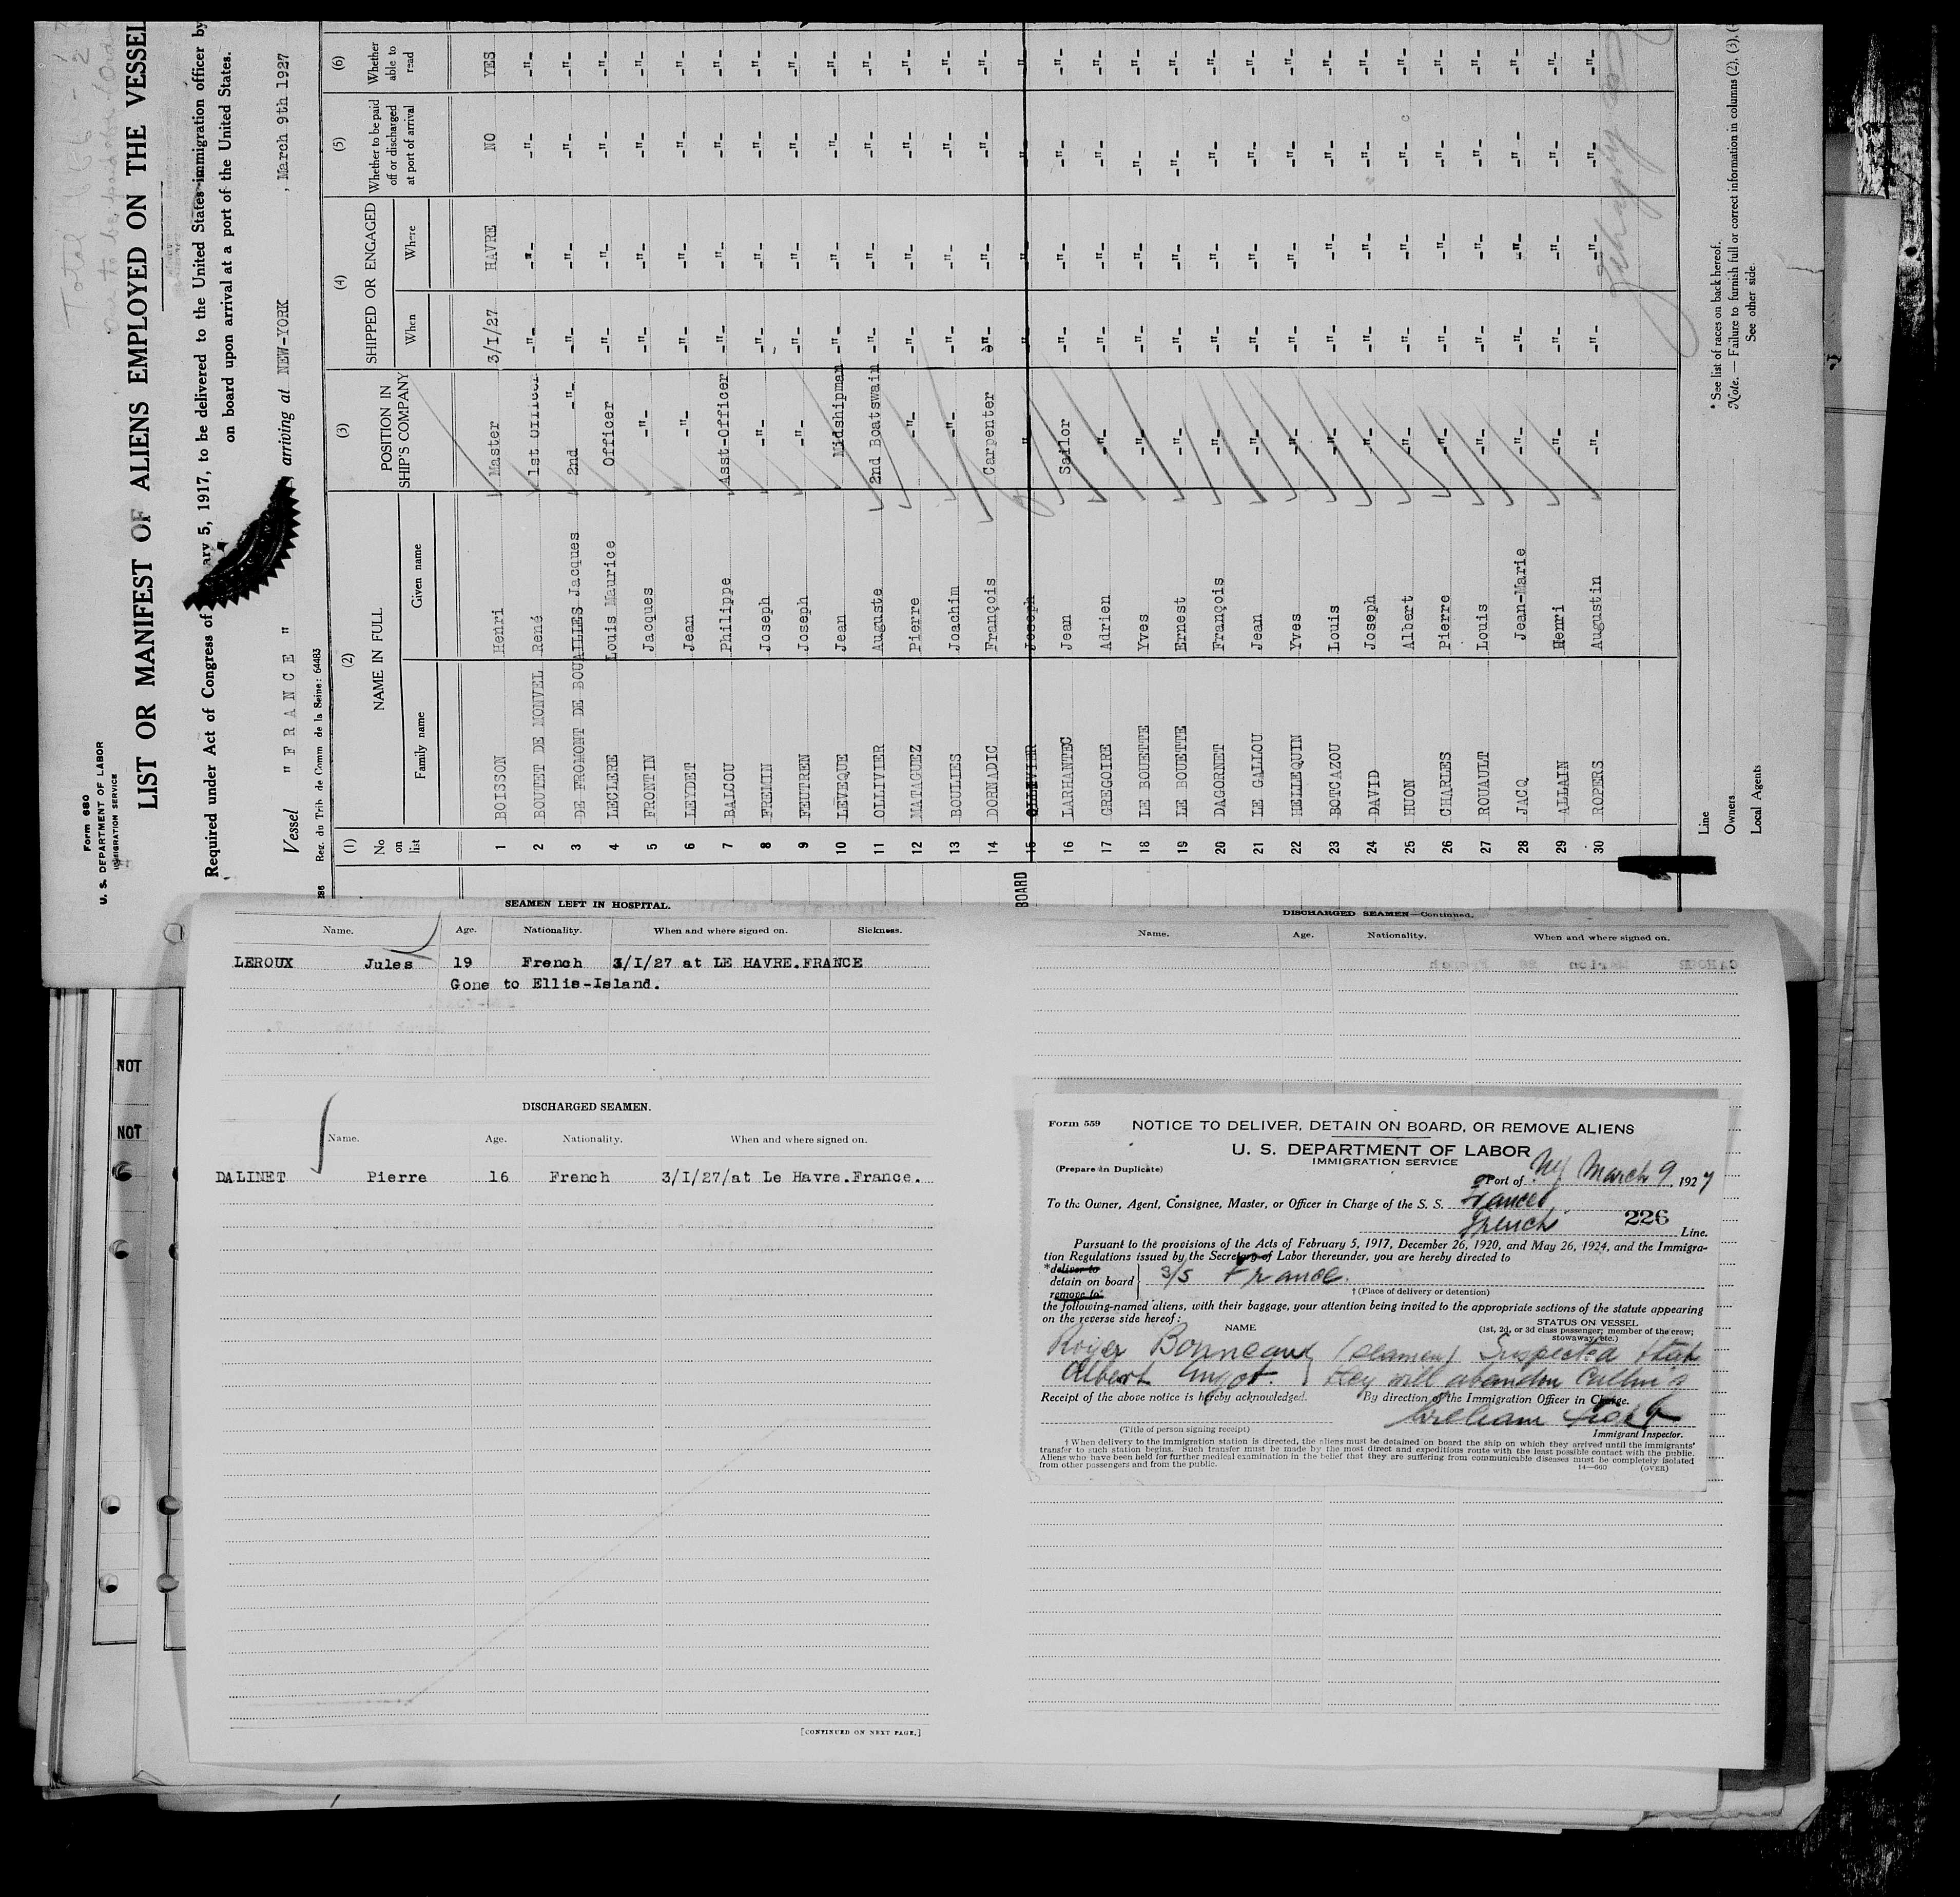 Form 680
U. S. DEPARTMENT OF LABOR
IMMIGRATION SERVICE
Total
LIST OR MANIFEST OF ALIENS EMPLOYED ON THE VESSEL
Required under Act of Congress of ary 5, 1917, to be delivered to the United States immigration officer by
on board upon arrival at a port of the United States.
Vessel " F R A N C E " arriving at NEW-YORK , March 9th 1927
Reg. du Trib. de Comm de la Seine: 64483
(1) (2) (3) (4) (5) (6)
No on list NAME IN FULL POSITION IN SHIP'S COMPANY SHIPPED OR ENGAGED Whether to be paid off or discharged at port of arrival Whether able to read
Family name Given name When Where
1 BOISSON Henri Master 3/I/27 HAVRE NO YES
2 BOUTET DE MONVEL René 1st Officer -"- -"- -"- -"-
3 DE FROMONT DE BOUAILLES Jacques 2nd -"- -"- -"- -"- -"-
4 LECLERE Louis Maurice Officer -"- -"- -"- -"-
5 FRONTIN Jacques -"- -"- -"- -"- -"-
6 LEYDET Jean -"- -"- -"- -"- -"-
7 BALCOU Philippe Asst-Officer -"- -"- -"- -"-
8 FREMIN Joseph -"- -"- -"- -"- -"-
9 FEUTREN Joseph -"- -"- -"- -"- -"-
10 LEVEQUE Jean Midshipman -"- -"- -"- -"-
11 OLLIVIER Auguste 2nd Boatswain -"- -"- -"- -"-
12 MATAGUEZ Pierre -"- -"- -"- -"- -"-
13 BOULIES Joachim -"- -"- -"- -"- -"-
14 DORNADIC François Carpenter -"- -"- -"- -"-
BOARD 15 OLLIVIER Joseph " " " " "
16 LARHANTEC Jean Sailor -"- -"- -"- -"-
17 GREGOIRE Adrien -"- -"- -"- -"- -"-
18 LE BOUETTE Yves -"- -"- -"- -"- -"-
19 LE BOUETTE Ernest -"- -"- -"- -"- -"-
20 DAGORNET François -"- -"- -"- -"- -"-
21 LE GALLOU Jean -"- -"- -"- -"- -"-
22 HELLEQUIN Yves -"- -"- -"- -"- -"-
23 BOTCAZOU Louis -"- -"- -"- -"- -"-
24 DAVID Joseph -"- -"- -"- -"- -"-
25 HUON Albert -"- -"- -"- -"- -"-
26 CHARLES Pierre -"- -"- -"- -"- -"-
27 ROUAULT Louis -"- -"- -"- -"- -"-
28 JACQ Jean-Marie -"- -"- -"- -"- -"-
29 ALLAIN Henri -"- -"- -"- -"- -"-
30 ROPERS Augustin -"- -"- -"- -"- -"-
Line
Owners
Local Agents
* See list of races on back hereof.
Note. — Failure to furnish full or correct information in columns (2), (3),
See other side
NOT
NOT
SEAMEN LEFT IN HOSPITAL.
Name. Age. Nationality. When and where signed on. Sickness.
LEROUX Jules 19 French 3/I/27 at LE HAVRE.FRANCE
Gone to Ellis-Island.
DISCHARGED SEAMEN.
Name. Age. Nationality. When and where signed on.
DALINET Pierre 16 French 3/I/27/at Le Havre.France.
[CONTINUED ON NEXT PAGE.]
DISCHARGED SEAMEN—Continued.
Name. Age. Nationality. When and where signed on.
Form 559 NOTICE TO DELIVER, DETAIN ON BOARD, OR REMOVE ALIENS
U. S. DEPARTMENT OF LABOR
IMMIGRATION SERVICE
(Prepare in Duplicate)
Port of NY March 9, 1927
To the Owner, Agent, Consignee, Master, or Officer in Charge of the S. S. France
French 226 Line.
Pursuant to the provisions of the Acts of February 5, 1917, December 26, 1920, and May 26, 1924, and the Immigra-
tion Regulations issued by the Secretary of Labor thereunder, you are hereby directed to
*deliver to
detain on board S/S France.
remove to
† (Place of delivery or detention)
the following-named aliens, with their baggage, your attention being invited to the appropriate sections of the statute appearing
on the reverse side hereof:
NAME STATUS ON VESSEL
(1st, 2d, or 3d class passenger; member of the crew;
stowaway, etc.)
Roger (seamen) Suspected that
Albert they will abandon
Receipt of the above notice is hereby acknowledged. By direction of the Immigration Officer in Charge.
William
(Title of person signing receipt) Immigrant Inspector.
† When delivery to the immigration station is directed, the aliens must be detained on board the ship on which they arrived until the immigrants'
transfer to such station begins. Such transfer must be made by the most direct and expeditious route with the least possible contact with the public.
Aliens who have been held for further medical examination in the belief that they are suffering from communicable diseases must be completely isolated
from other passengers and from the public. 14—660 (OVER)